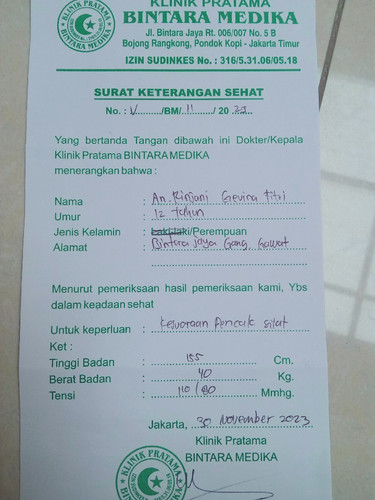 KLINIK PRATAMA
BINTARA MEDIKA
Jl. Bintara Jaya Rt. 006/007 No. 5 B
Bojong Rangkong, Pondok Kopi - Jakarta Timur
IZIN SUDINKES No. : 316/5.31.06/05.18
KLINIK PRATAMA
BINTARA MEDIKA
SURAT KETERANGAN SEHAT
No. : V /BM/ 11 / 20 23
Yang bertanda Tangan dibawah ini Dokter/Kepala
Klinik Pratama BINTARA MEDIKA
menerangkan bahwa :
Nama : An. Rinjani Gevira Fitri
Umur : 12 Tahun
Jenis Kelamin : Laki-laki/Perempuan
Alamat : Bintara Jaya Gang Gawat
Menurut pemeriksaan hasil pemeriksaan kami, Ybs
dalam keadaan sehat
Untuk keperluan : Kejuaraan Pencak Silat
Ket :
Tinggi Badan : 155 Cm.
Berat Badan : 40 Kg.
Tensi : 110/80 Mmhg.
Jakarta, 30 November 2023
Klinik Pratama
BINTARA MEDIKA
KLINIK PRATAMA